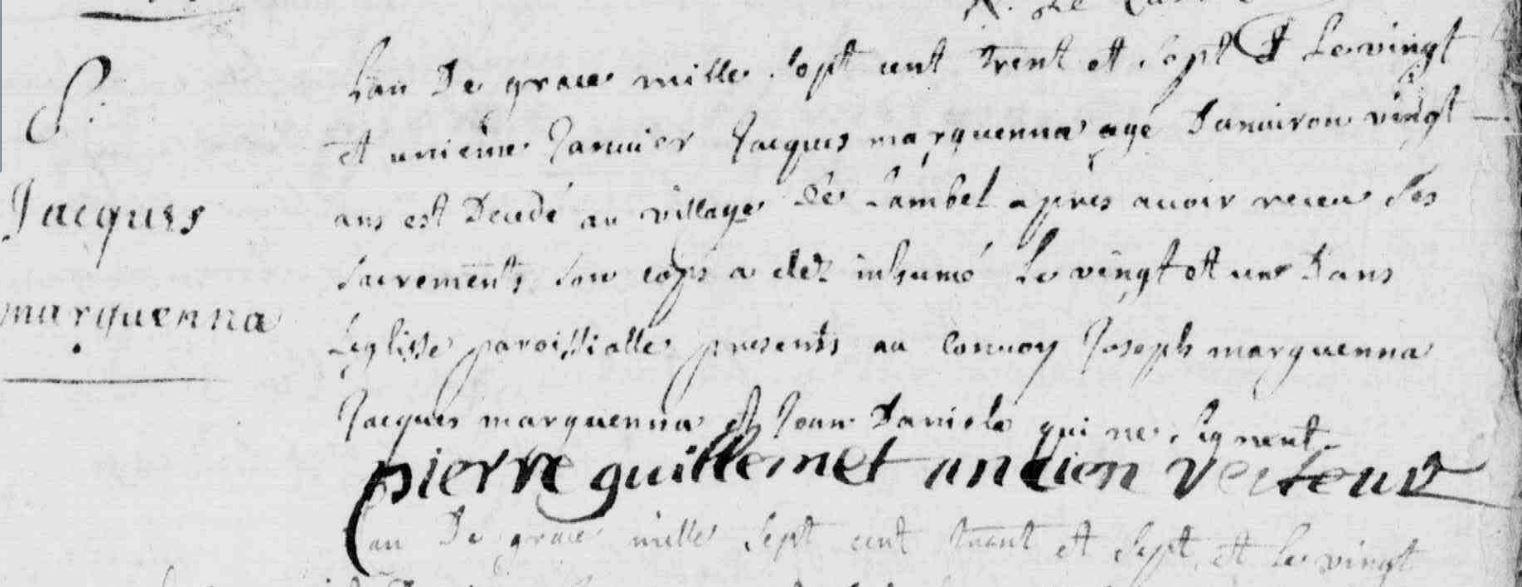 S.
Jacques
marquenna
Lan De grace mille sept cent trent et sept & Le vingt
et unieme Januier Jacques marquenna agé Danuiron vingt
ans est Decede au village de Lambel apres auoir receu les
sacrements son cops a etez inhumé Le vingt et une Dans
Leglisse paroissialle presents au conuoy Joseph marquenna
Jacques marquenna et Jean Daniele qui ne signent
pierre guillemet ancien recteur
Lan De grace mille sept cent trent et sept et Le vingt